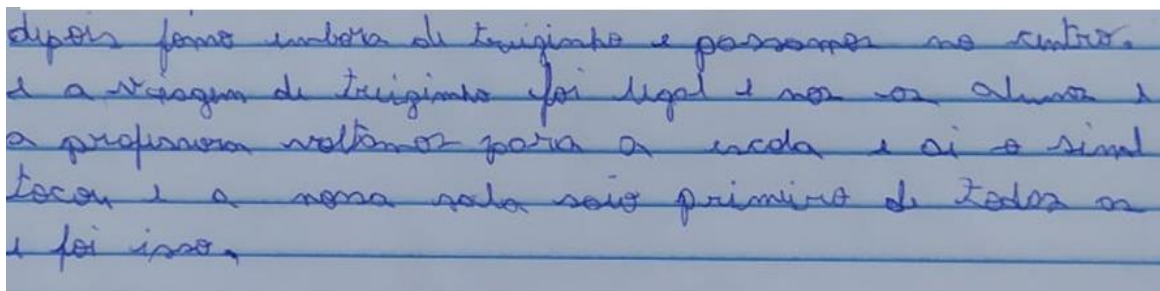 depois fomo embora de treiginho e passamos no centro.
e a viagem de treiginho foi legal e nos os alunos e
a professora voltamos para a escola e ai o sinal
tocou e a nossa sala saio primeiro de todos os
e foi isso.